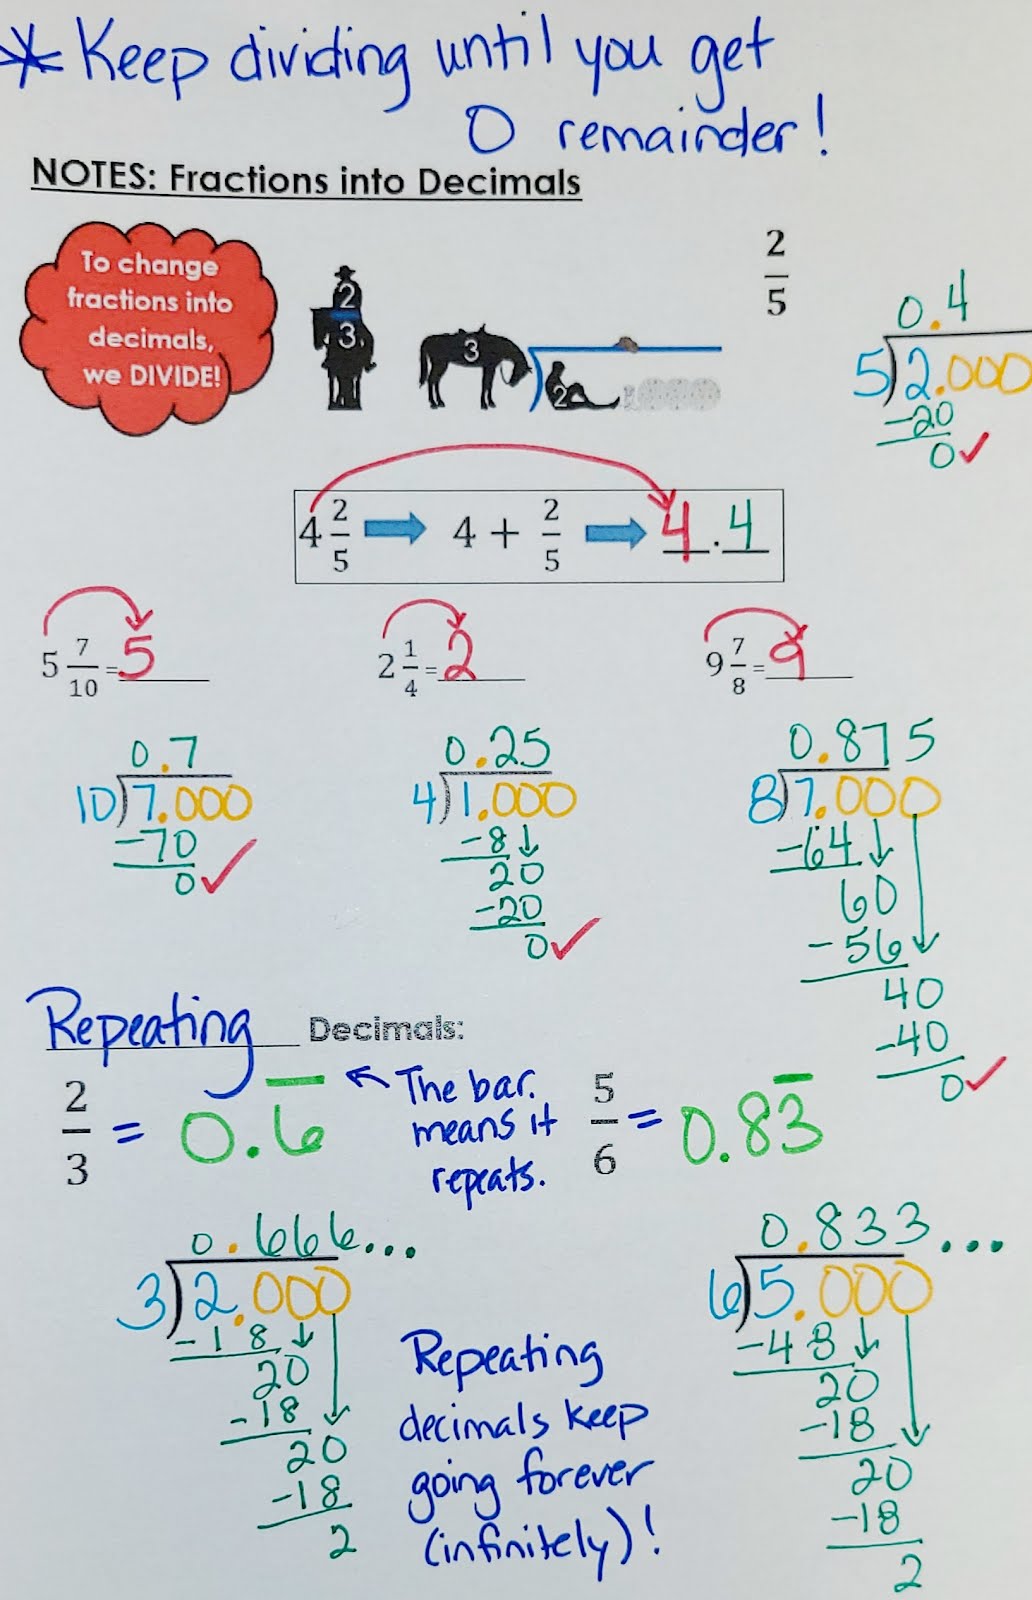 * Keep dividing until you get
0 remainder!
NOTES: Fractions into Decimals
To change
fractions into
decimals,
we DIVIDE!
2
3
3
2
2
5
0.4
5)2.000
-20
0✓
4 2/5 → 4 + 2/5 → 4.4
5 7/10 = 5
2 1/4 = 2
9 7/8 = 9
0.7
10)7.000
-70
0✓
0.25
4)1.000
-8↓
20
-20
0✓
0.875
8)7.000
-64↓
60
-56
40
-40
0✓
Repeating Decimals:
2/3 = 0.6̅
← The bar.
means it
repeats.
5/6 = 0.83̅
0.666...
3)2.000
-18↓
20
-18
20
-18
2
Repeating
decimals keep
going forever
(infinitely)!
0.833...
6)5.000
-48↓
20
-18
20
-18
2